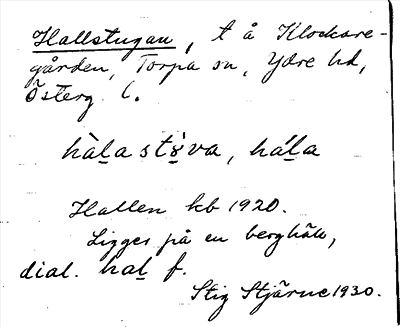 Hallstugan, t å Klockare-
gården, Torpa sn, Ydre hd,
Österg. l.
hàḻastö̀va, há́ḻa
Hallen kb 1920.
Ligger på en berghäll,
dial. haḻ f.
Stig Stjärne 1930.